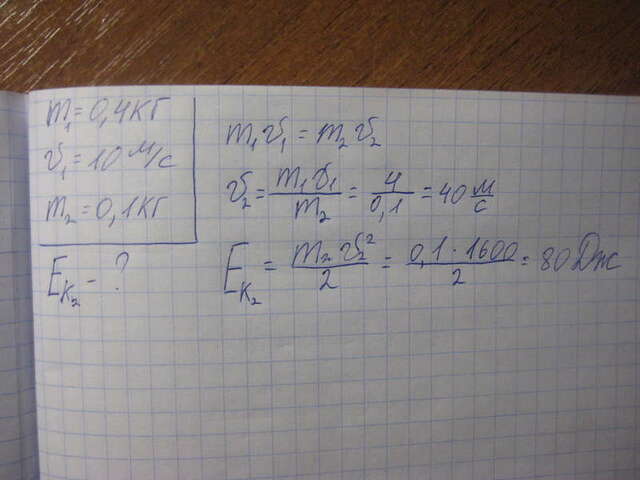 m₁ = 0,4 кг
v₁ = 10 м/с
m₂ = 0,1 кг
Eк₂ - ?
m₁v₁ = m₂v₂
v₂ = m₁v₁/m₂ = 4/0,1 = 40 м/с
Eк₂ = m₂v₂²/2 = 0,1 · 1600/2 = 80 Дж